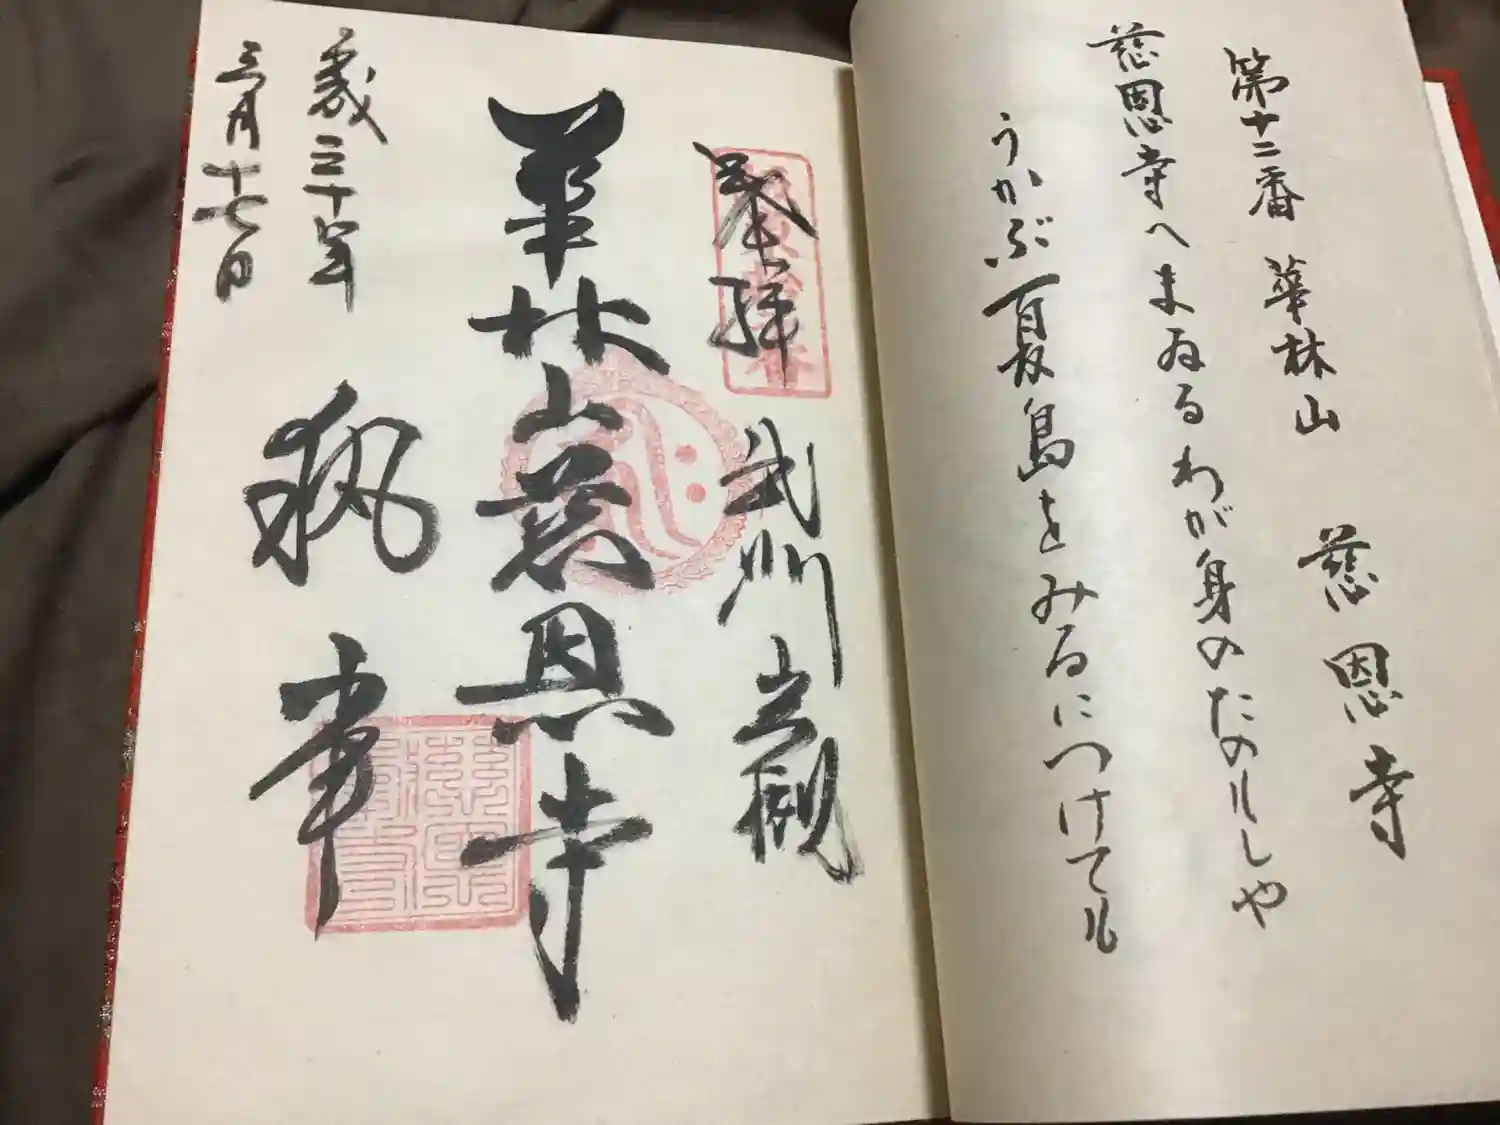 第十二番 華林山 慈恩寺
慈恩寺へまゐるわが身のたのもしや
うかぶ夏島をみるにつけても
奉拝 武州岩槻
華林山慈恩寺
歳三十年
三月十七日